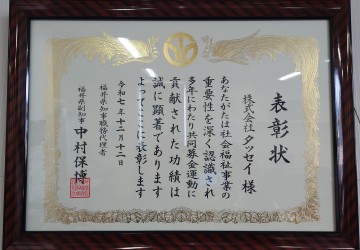 表彰状
株式会社 タッセイ 様
あなたがたは社会福祉事業の
重要性を深く認識され
多年にわたり共同募金運動に
貢献された功績は
誠に顕著であります
よってここに表彰します
令和七年十二月十二日
福井県知事職務代理者
福井県副知事 中村保博